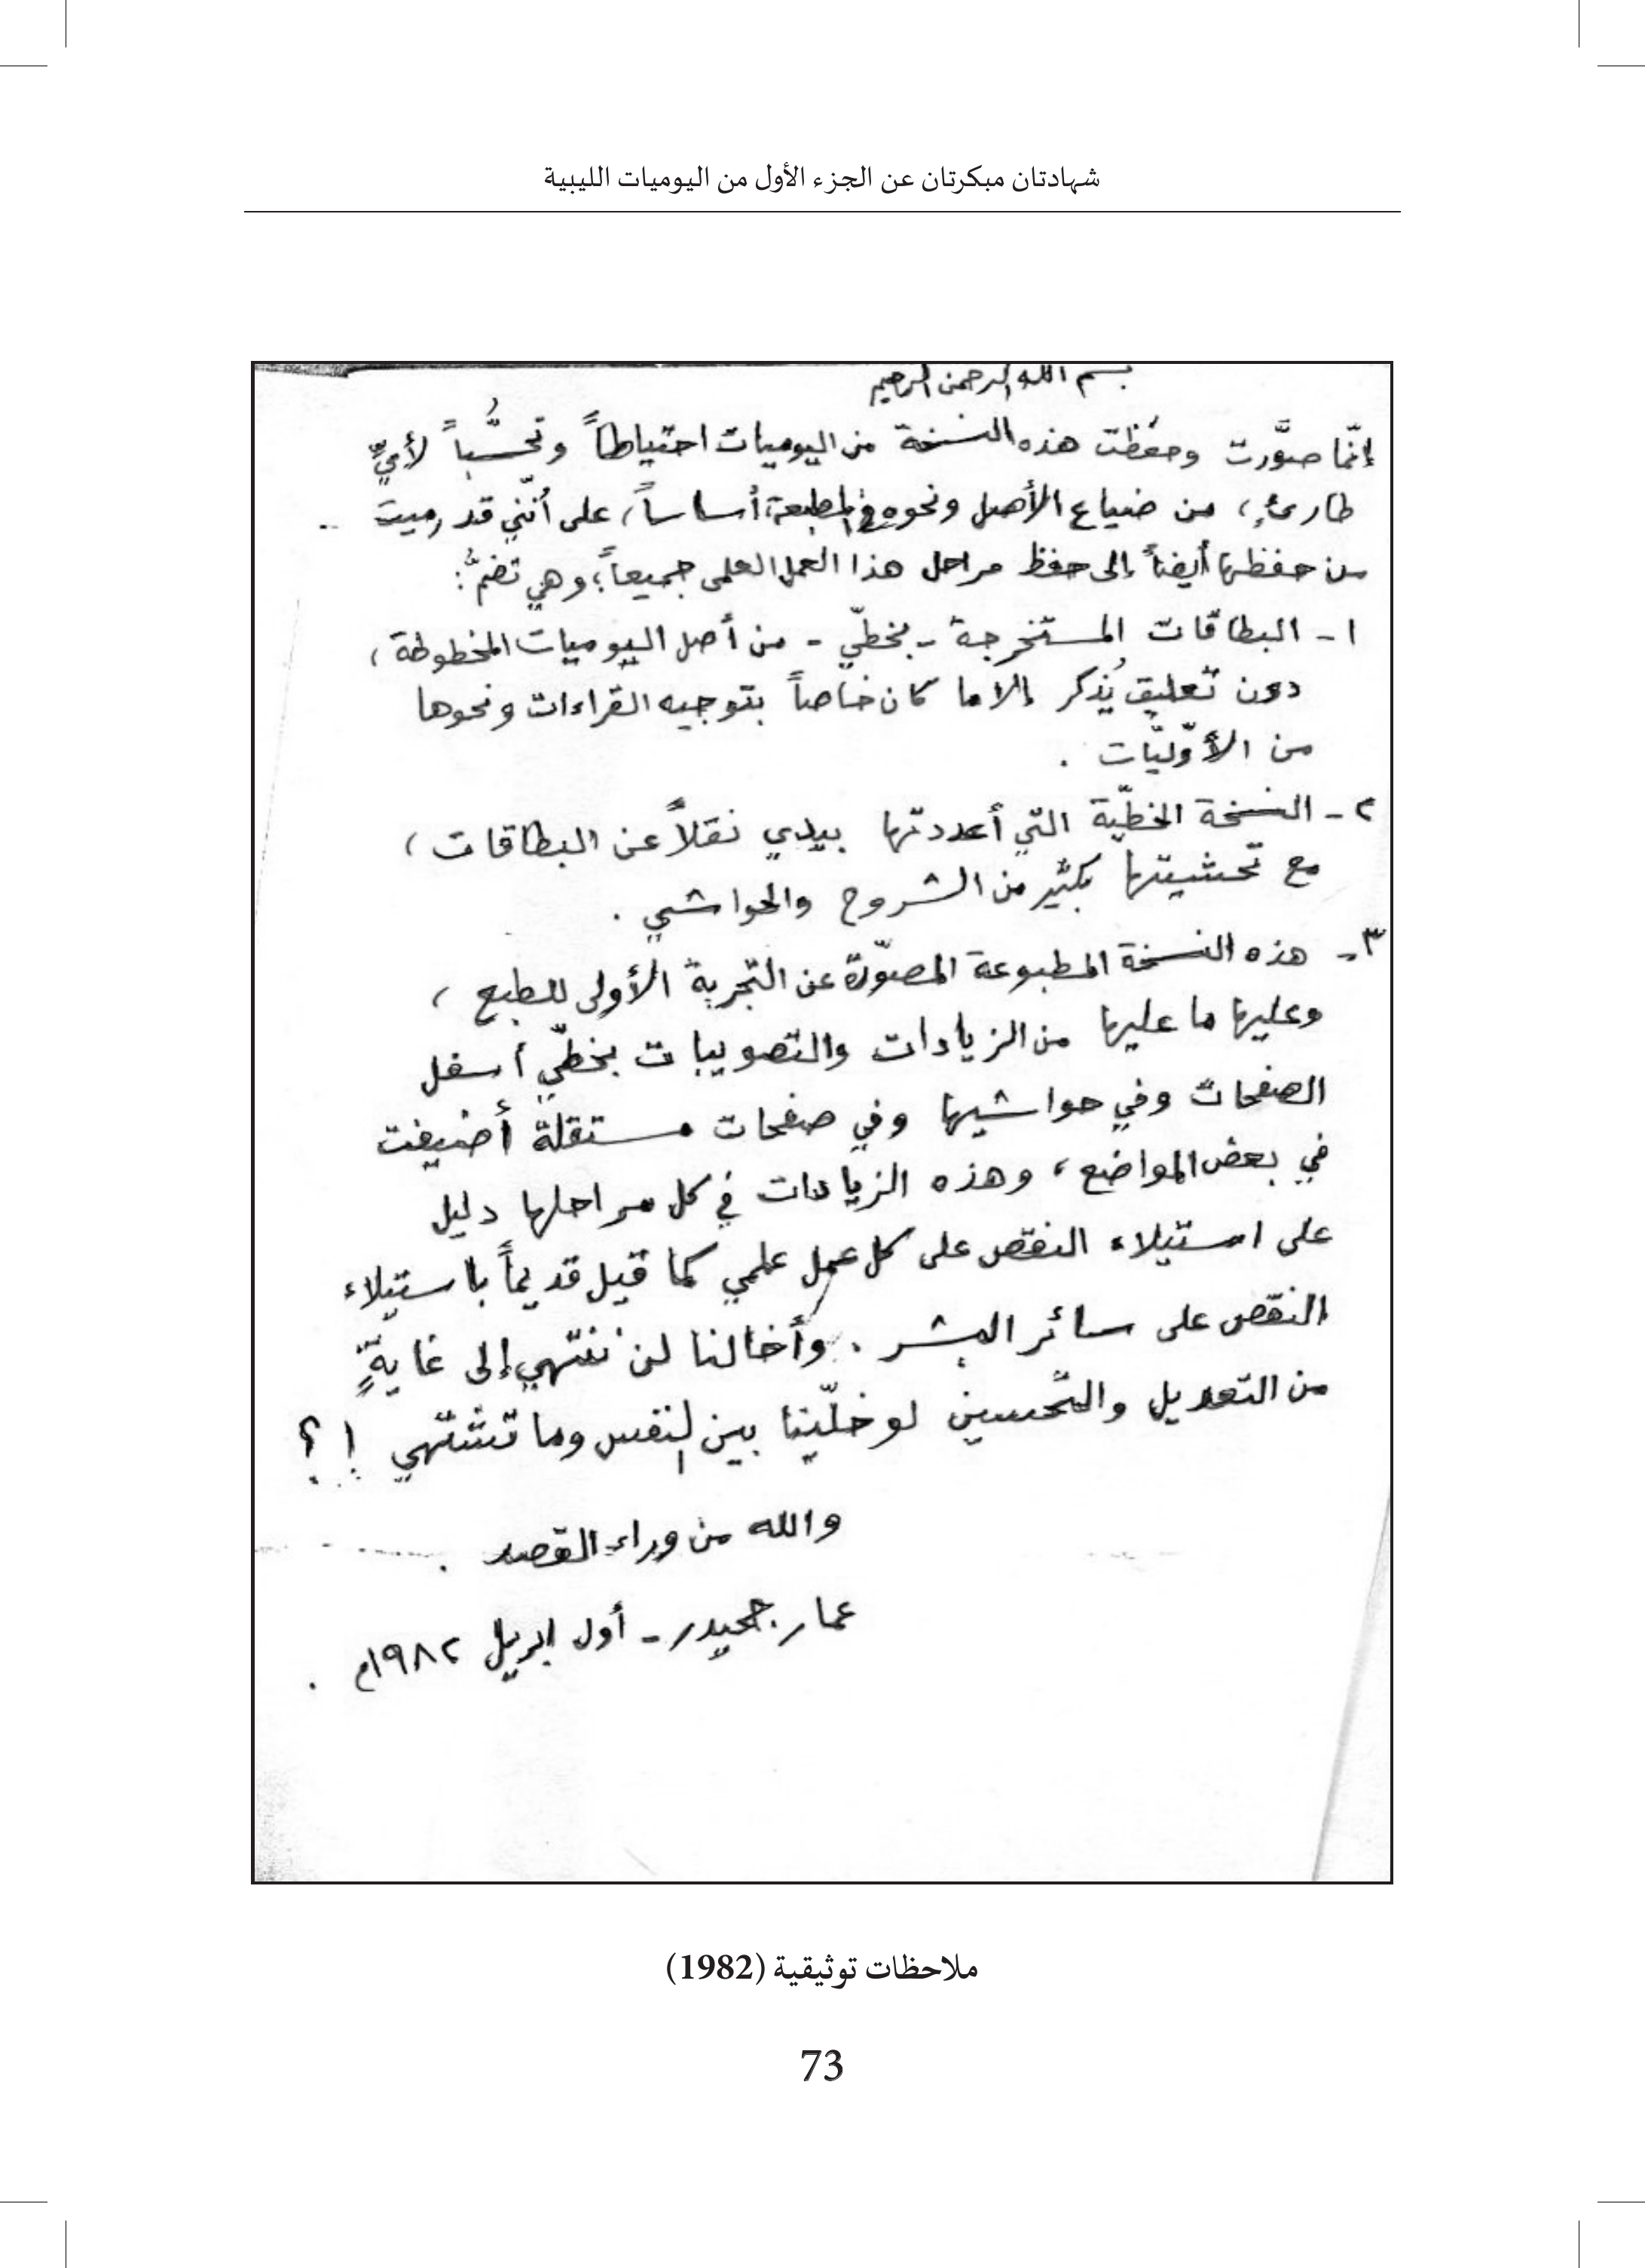 شهادتان مبكرتان عن الجزء الأول من اليوميات الليبية
بسم الله الرحمن الرحيم
إنّما صوَّرت وحفظت هذه النسخة من اليوميات احتياطاً وتحسُّباً لأميٍّ
طارئٍ، من ضياع الأصل ونحوه في المطبعة أساساً، على أنّني قد رميت ..
من حفظها أيضاً إلى حفظ مراحل هذا العمل العلمي جميعاً؛ وهي تضمُّ:
١ - البطاقات المستخرجة - بخطّي - من أصل اليوميات المخطوطة،
دون تعليق يُذكر إلا ما كان خاصاً بتوجيه القراءات ونحوها
من الأوّليّات .
٢ - النسخة الخطّية التي أعددتها بيدي نقلاً عن البطاقات،
مع تحشيتها بكثير من الشروح والحواشي .
٣ - هذه النسخة المطبوعة المصوّرة عن التجربة الأولى للطبع،
وعليها ما عليها من الزيادات والتصويبات بخطّي أسفل
الصفحات وفي حواشيها وفي صفحات مستقلة أضيفت
في بعض المواضع، وهذه الزيادات في كل مراحلها دليل
على استيلاء النقص على كل عمل علمي كما قيل قديماً باستيلاء
النقص على سائر البشر . وأخالنا لن ننتهي إلى غايةٍ
من التعديل والتحسين لو خلّينا بين النفس وما تشتهي !؟
والله من وراء القصد .
عمار جحيدر - أول ابريل ١٩٨٢م .
ملاحظات توثيقية (1982)
73